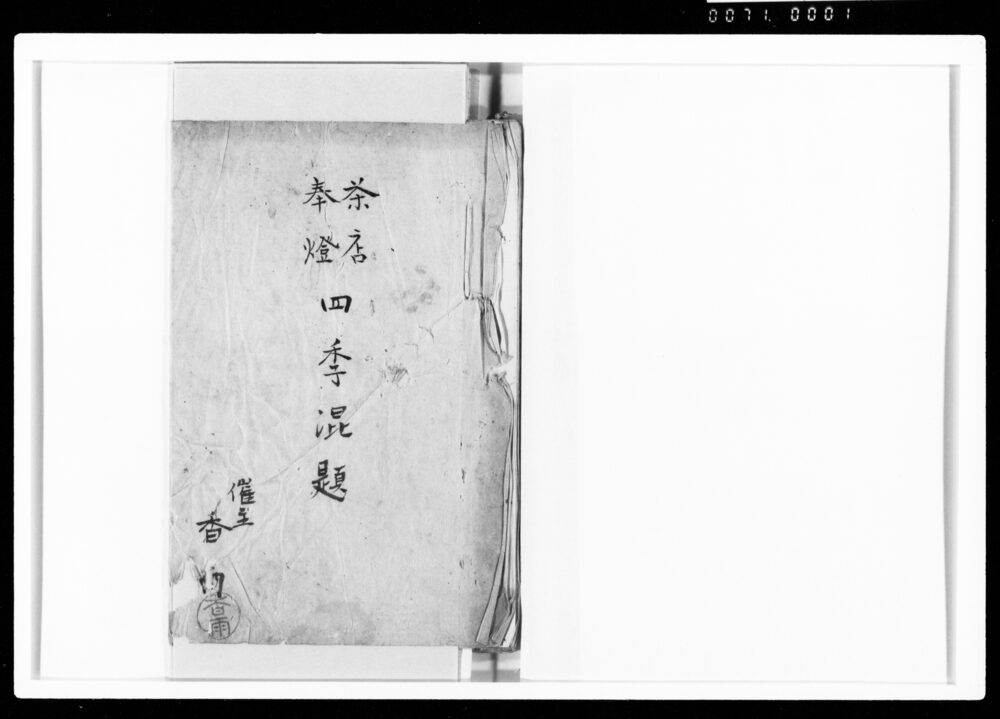 0071. 0001
茶店
奉燈
四季混題
催主
香
香雨